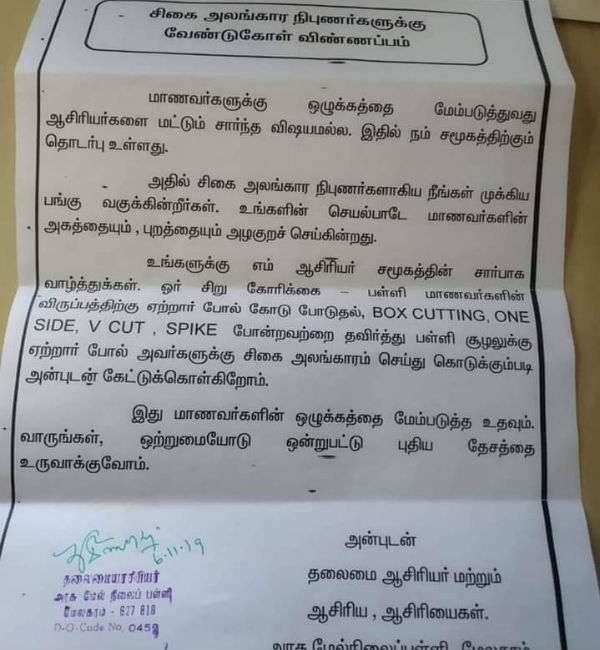 சிகை அலங்கார நிபுணர்களுக்கு
வேண்டுகோள் விண்ணப்பம்
மாணவர்களுக்கு ஒழுக்கத்தை மேம்படுத்துவது
ஆசிரியர்களை மட்டும் சார்ந்த விஷயமல்ல. இதில் நம் சமூகத்திற்கும்
தொடர்பு உள்ளது.
அதில் சிகை அலங்கார நிபுணர்களாகிய நீங்கள் முக்கிய
பங்கு வகுக்கின்றீர்கள். உங்களின் செயல்பாடே மாணவர்களின்
அகத்தையும் , புறத்தையும் அழகுறச் செய்கின்றது.
உங்களுக்கு எம் ஆசிரியர் சமூகத்தின் சார்பாக
வாழ்த்துக்கள். ஓர் சிறு கோரிக்கை – பள்ளி மாணவர்களின்
விருப்பத்திற்கு ஏற்றார் போல் கோடு போடுதல், BOX CUTTING, ONE
SIDE, V CUT , SPIKE போன்றவற்றை தவிர்த்து பள்ளி சூழலுக்கு
ஏற்றார் போல் அவர்களுக்கு சிகை அலங்காரம் செய்து கொடுக்கும்படி
அன்புடன் கேட்டுக்கொள்கிறோம்.
இது மாணவர்களின் ஒழுக்கத்தை மேம்படுத்த உதவும்.
வாருங்கள், ஒற்றுமையோடு ஒன்றுபட்டு புதிய தேசத்தை
உருவாக்குவோம்.
6.11.19
தலைமையாசிரியர்
அரசு மேல் நிலைப் பள்ளி
மேலகரம் - 627 818
D-O-Code No, 045
அன்புடன்
தலைமை ஆசிரியர் மற்றும்
ஆசிரிய , ஆசிரியைகள்.
அரசு மேல்நிலைப்பள்ளி, மேலகரம்